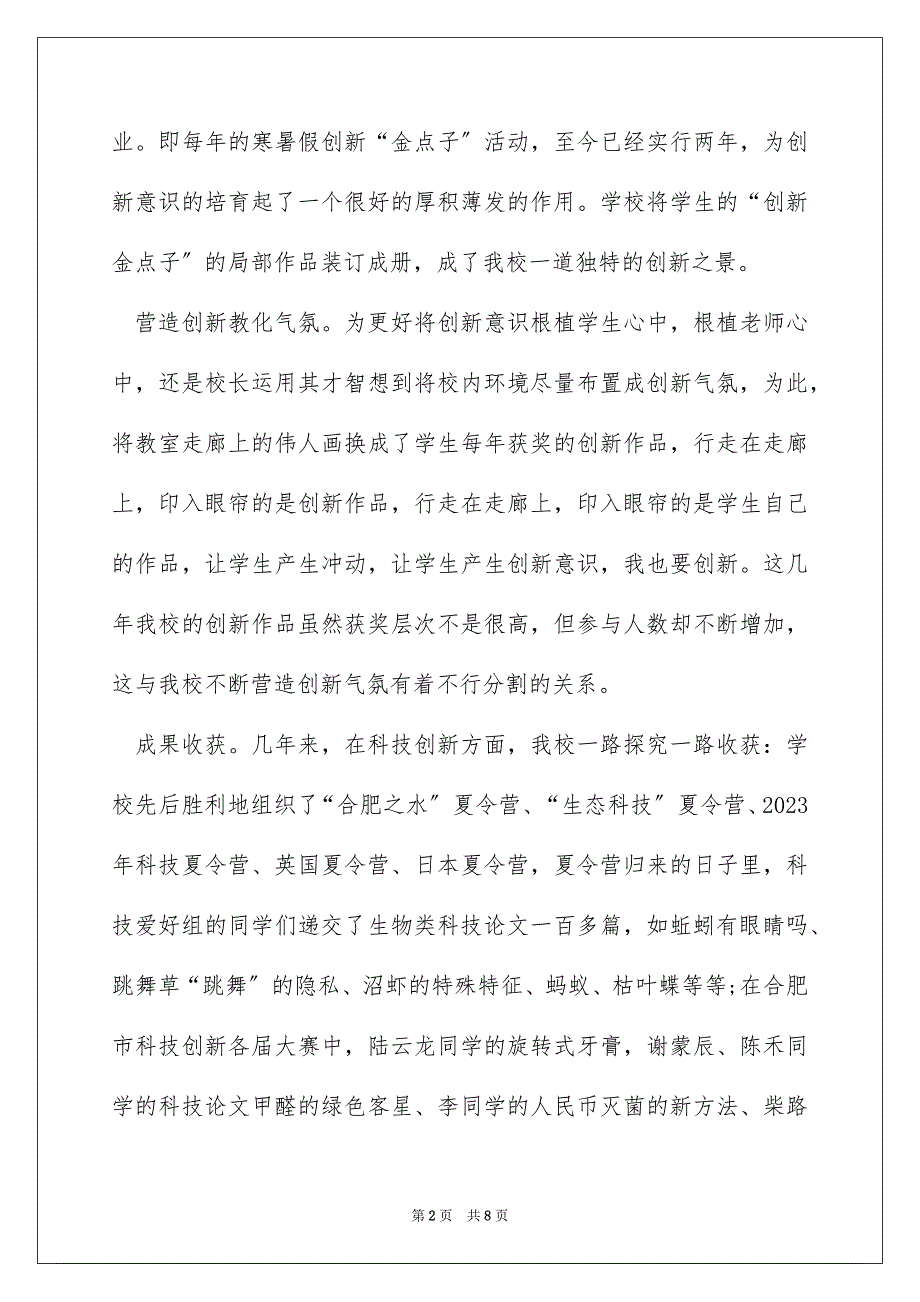 业。即每年的寒暑假创新“金点子〞活动，至今已经实行两年，为创
新意识的培育起了一个很好的厚积薄发的作用。学校将学生的“创新
金点子〞的局部作品装订成册，成了我校一道独特的创新之景。
营造创新教化气氛。为更好将创新意识根植学生心中，根植老师心
中，还是校长运用其才智想到将校内环境尽量布置成创新气氛，为此，
将教室走廊上的伟人画换成了学生每年获奖的创新作品，行走在走廊
上，印入眼帘的是创新作品，行走在走廊上，印入眼帘的是学生自己
的作品，让学生产生冲动，让学生产生创新意识，我也要创新。这几
年我校的创新作品虽然获奖层次不是很高，但参与人数却不断增加，
这与我校不断营造创新气氛有着不行分割的关系。
成果收获。几年来，在科技创新方面，我校一路探究一路收获：学
校先后胜利地组织了“合肥之水〞夏令营、“生态科技〞夏令营、2023
年科技夏令营、英国夏令营、日本夏令营，夏令营归来的日子里，科
技爱好组的同学们递交了生物类科技论文一百多篇，如蚯蚓有眼睛吗、
跳舞草“跳舞〞的隐私、沼虾的特殊特征、蚂蚁、枯叶蝶等等;在合肥
市科技创新各届大赛中，陆云龙同学的旋转式牙膏，谢蒙辰、陈禾同
学的科技论文甲醛的绿色客星、李同学的人民币灭菌的新方法、柴路
第 2 页 共 8 页